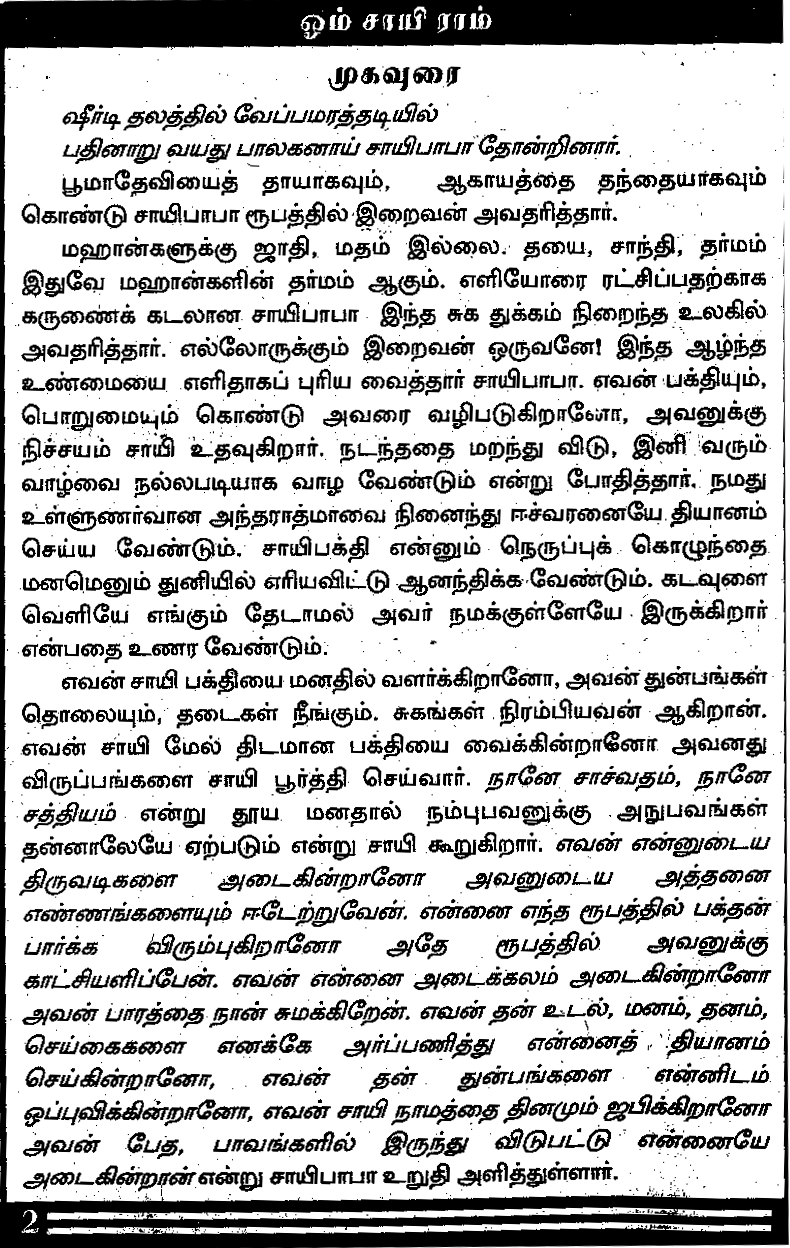 ஓம் சாயி ராம்
முகவுரை
ஷீர்டி தலத்தில் வேப்பமரத்தடியில்
பதினாறு வயது பாலகனாய் சாயிபாபா தோன்றினார்.
பூமாதேவியைத் தாயாகவும், ஆகாயத்தை தந்தையாகவும்
கொண்டு சாயிபாபா ரூபத்தில் இறைவன் அவதரித்தார்.
மஹான்களுக்கு ஜாதி, மதம் இல்லை. தயை, சாந்தி, தர்மம்
இதுவே மஹான்களின் தர்மம் ஆகும். எளியோரை ரட்சிப்பதற்காக
கருணைக் கடலான சாயிபாபா இந்த சுக துக்கம் நிறைந்த உலகில்
அவதரித்தார். எல்லோருக்கும் இறைவன் ஒருவனே! இந்த ஆழ்ந்த
உண்மையை எளிதாகப் புரிய வைத்தார் சாயிபாபா. எவன் பக்தியும்,
பொறுமையும் கொண்டு அவரை வழிபடுகிறானோ, அவனுக்கு
நிச்சயம் சாயி உதவுகிறார். நடந்ததை மறந்து விடு, இனி வரும்
வாழ்வை நல்லபடியாக வாழ வேண்டும் என்று போதித்தார். நமது
உள்ளுணர்வான அந்தராத்மாவை நினைந்து ஈச்வரனையே தியானம்
செய்ய வேண்டும். சாயிபக்தி என்னும் நெருப்புக் கொழுந்தை
மனமெனும் துனியில் எரியவிட்டு ஆனந்திக்க வேண்டும். கடவுளை
வெளியே எங்கும் தேடாமல் அவர் நமக்குள்ளேயே இருக்கிறார்
என்பதை உணர வேண்டும்.
எவன் சாயி பக்தியை மனதில் வளர்க்கிறானோ, அவன் துன்பங்கள்
தொலையும், தடைகள் நீங்கும். சுகங்கள் நிரம்பியவன் ஆகிறான்.
எவன் சாயி மேல் திடமான பக்தியை வைக்கின்றானோ அவனது
விருப்பங்களை சாயி பூர்த்தி செய்வார். நானே சாச்வதம், நானே
சத்தியம் என்று தூய மனதால் நம்புபவனுக்கு அநுபவங்கள்
தன்னாலேயே ஏற்படும் என்று சாயி கூறுகிறார். எவன் என்னுடைய
திருவடிகளை அடைகின்றானோ அவனுடைய அத்தனை
எண்ணங்களையும் ஈடேற்றுவேன். என்னை எந்த ரூபத்தில் பக்தன்
பார்க்க விரும்புகிறானோ அதே ரூபத்தில் அவனுக்கு
காட்சியளிப்பேன். எவன் என்னை அடைக்கலம் அடைகின்றானோ
அவன் பாரத்தை நான் சுமக்கிறேன். எவன் தன் உடல், மனம், தனம்,
செய்கைகளை எனக்கே அர்ப்பணித்து என்னைத் தியானம்
செய்கின்றானோ, எவன் தன் துன்பங்களை என்னிடம்
ஒப்புவிக்கின்றானோ, எவன் சாயி நாமத்தை தினமும் ஜபிக்கிறானோ
அவன் பேத, பாவங்களில் இருந்து விடுபட்டு என்னையே
அடைகின்றான் என்று சாயிபாபா உறுதி அளித்துள்ளார்.
2